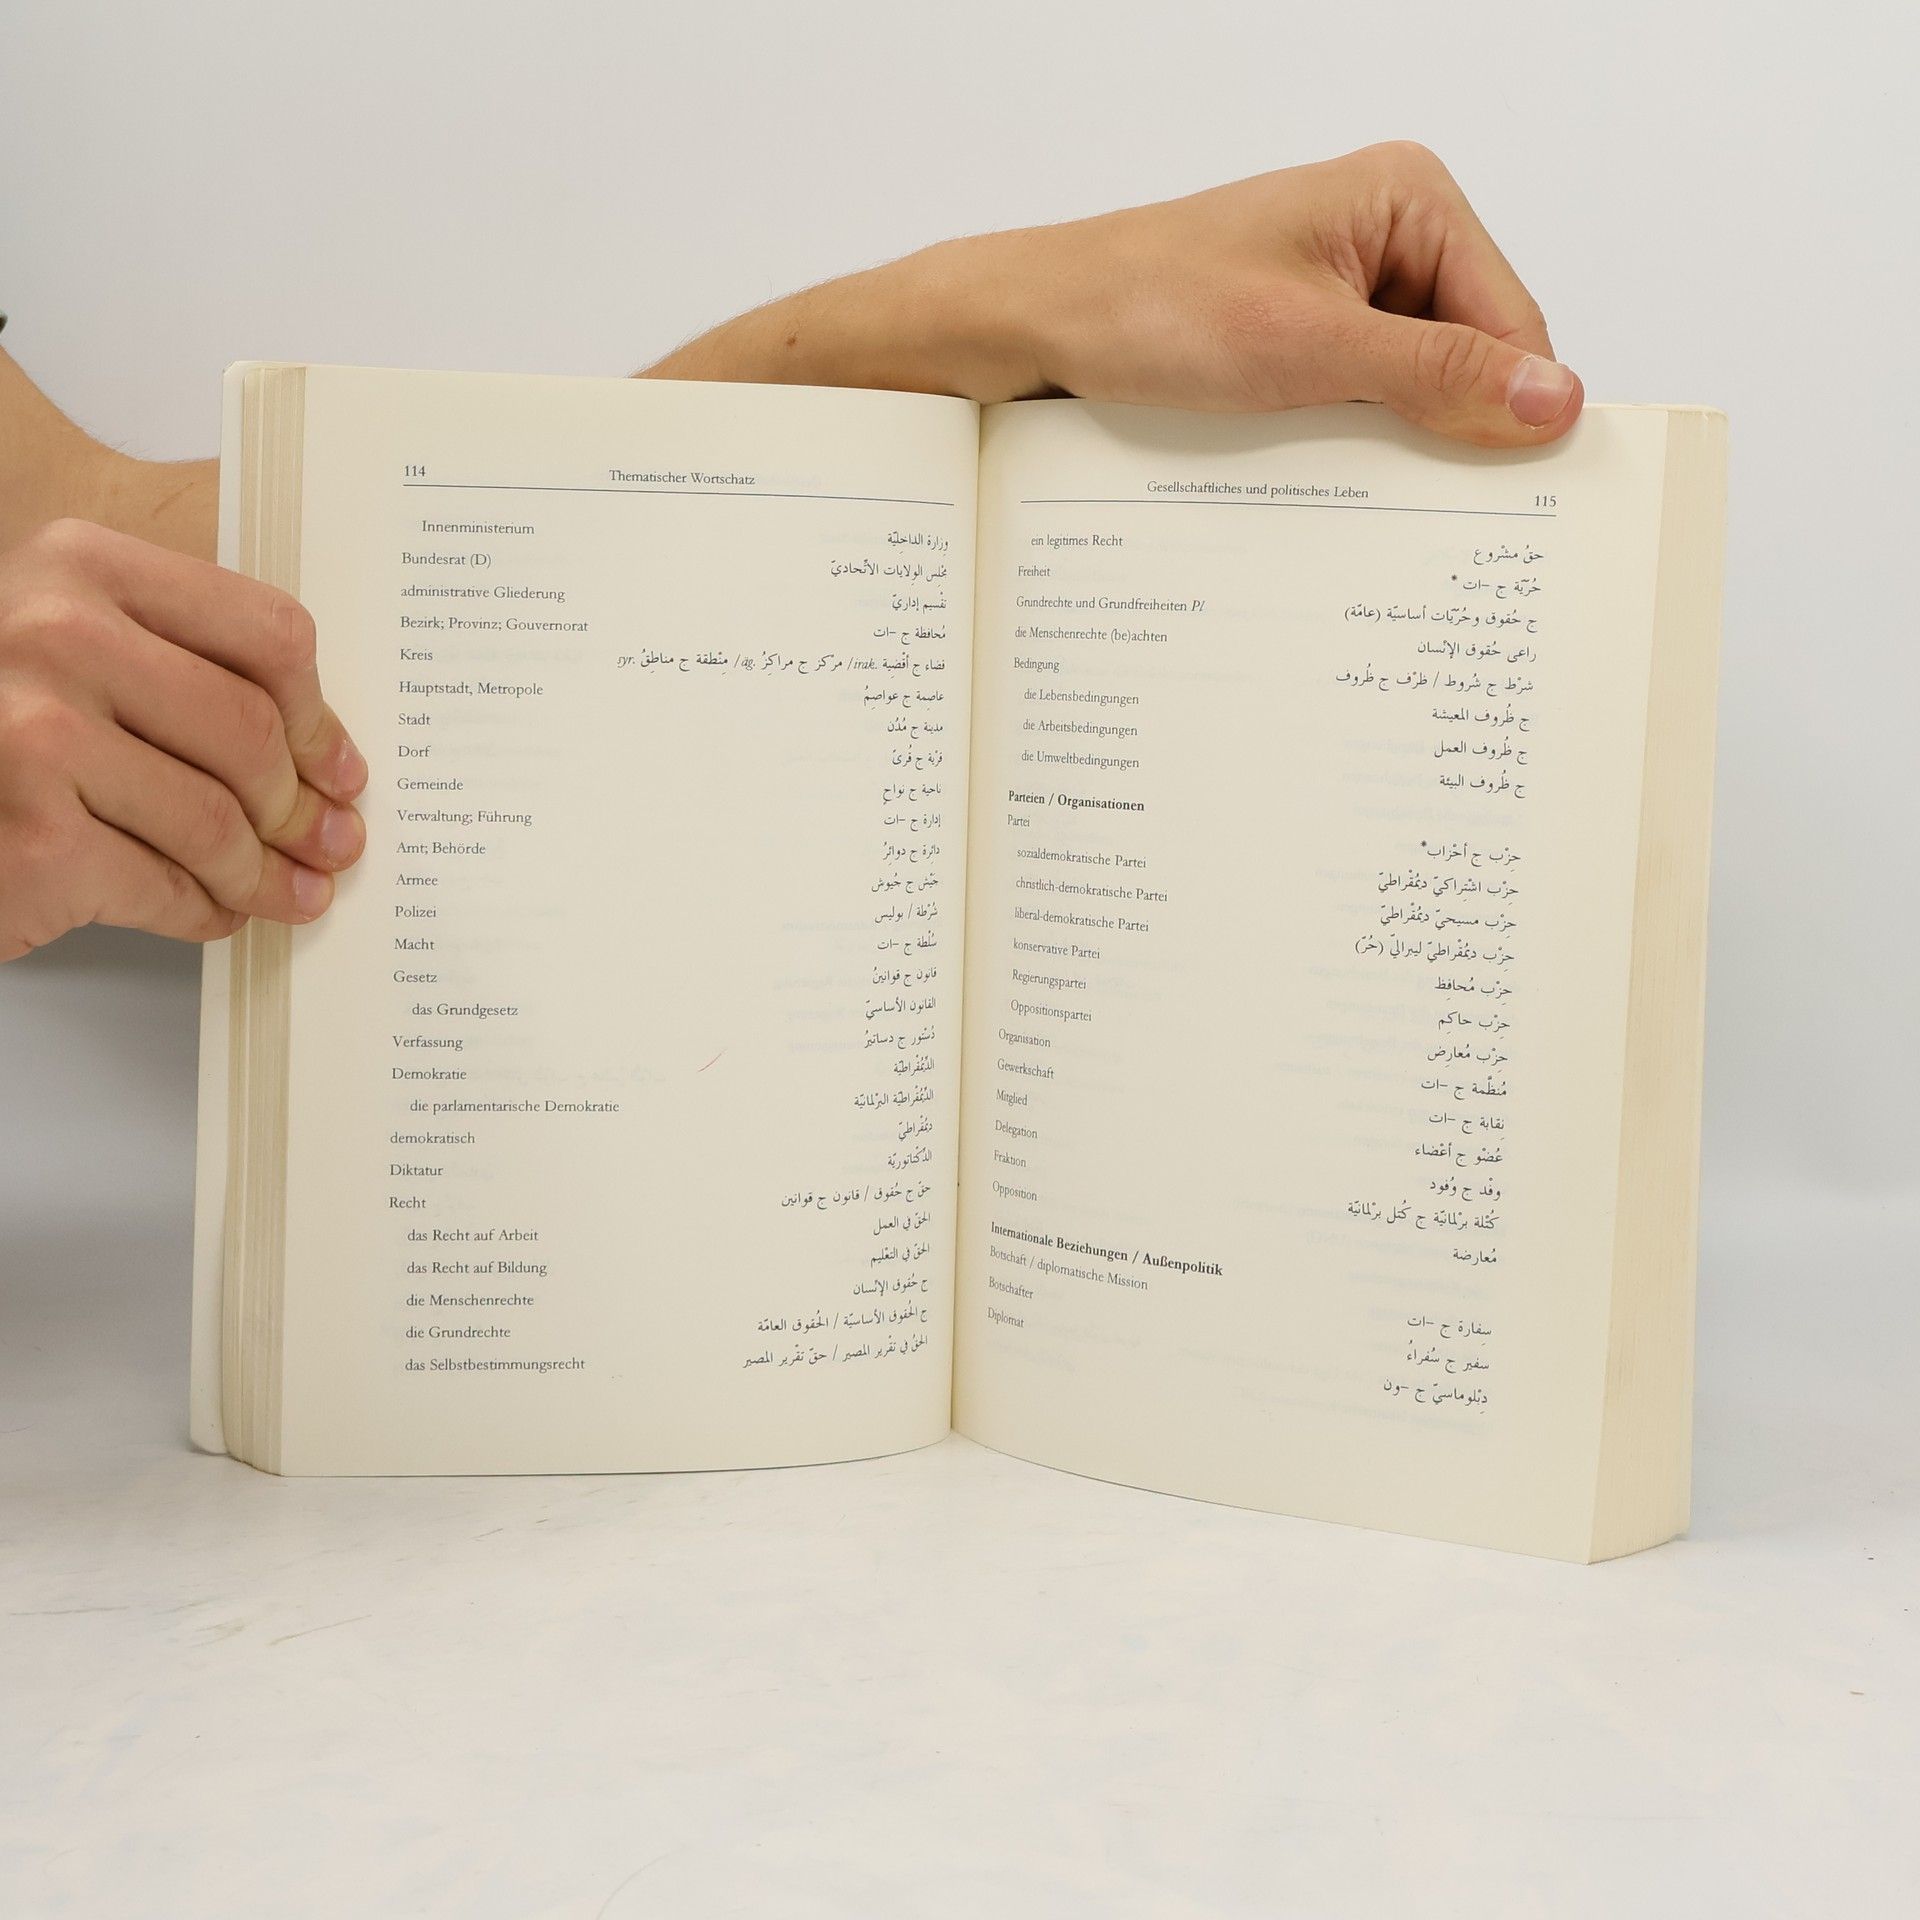 114 Thematischer Wortschatz
Innenministerium وِزارة الداخِليّة
Bundesrat (D) مجْلِس الوِلايات الاتّحاديّ
administrative Gliederung تقْسيم إداريّ
Bezirk; Provinz; Gouvernorat مُحافظة ج –ات
Kreis قضاء ج أقْضِية .irak/ مرْكز ج مراكِزُ .äg/ مِنْطقة ج مناطِقُ .syr
Hauptstadt, Metropole عاصِمة ج عواصِمُ
Stadt مدينة ج مُدُن
Dorf قرْية ج قُرىً
Gemeinde ناحية ج نواحٍ
Verwaltung; Führung إدارة ج –ات
Amt; Behörde دائِرة ج دوائِرُ
Armee جَيْش ج جُيوش
Polizei شُرْطة / بوليس
Macht سُلْطة ج –ات
Gesetz قانون ج قوانينُ
das Grundgesetz القانون الأساسيّ
Verfassung دُسْتور ج دساتيرُ
Demokratie الدّيمُقْراطيّة
die parlamentarische Demokratie الدّيمُقْراطيّة البرْلمانيّة
demokratisch ديمُقْراطيّ
Diktatur الدِّكْتاتوريّة
Recht حقّ ج حُقوق / قانون ج قوانين
das Recht auf Arbeit الحقّ في العمل
das Recht auf Bildung الحقّ في التعْليم
die Menschenrechte ج حُقوق الإنْسان
die Grundrechte ج الحُقوق الأساسيّة / الحُقوق العامّة
das Selbstbestimmungsrecht الحقُّ في تقْرير المصير / حقّ تقْرير المصير
Gesellschaftliches und politisches Leben 115
ein legitimes Recht حقُ مشْروع
Freiheit حُرّيّة ج –ات *
Grundrechte und Grundfreiheiten Pl ج حُقوق وحُرّيّات أساسيّة (عامّة)
die Menschenrechte (be)achten راعى حُقوق الإنْسان
Bedingung شرْط ج شُروط / ظرْف ج ظُروف
die Lebensbedingungen ج ظُروف المعيشة
die Arbeitsbedingungen ج ظُروف العمل
die Umweltbedingungen ج ظُروف البيئة
Parteien / Organisationen
Partei حِزْب ج أحْزاب*
sozialdemokratische Partei حِزْب اشْتِراكيّ ديمُقْراطيّ
christlich-demokratische Partei حِزْب مسيحيّ ديمُقْراطيّ
liberal-demokratische Partei حِزْب ديمُقْراطيّ ليبراليّ (حُرّ)
konservative Partei حِزْب مُحافِظ
Regierungspartei حِزْب حاكِم
Oppositionspartei حِزْب مُعارِض
Organisation مُنظّمة ج –ات
Gewerkschaft نِقابة ج –ات
Mitglied عُضْو ج أعْضاء
Delegation وفْد ج وُفود
Fraktion كُتْلة برْلمانيّة ج كُتل برْلمانيّة
Opposition مُعارضة
Internationale Beziehungen / Außenpolitik
Botschaft / diplomatische Mission سِفارة ج –ات
Botschafter سفير ج سُفراءُ
Diplomat دِبْلوماسيّ ج –ون